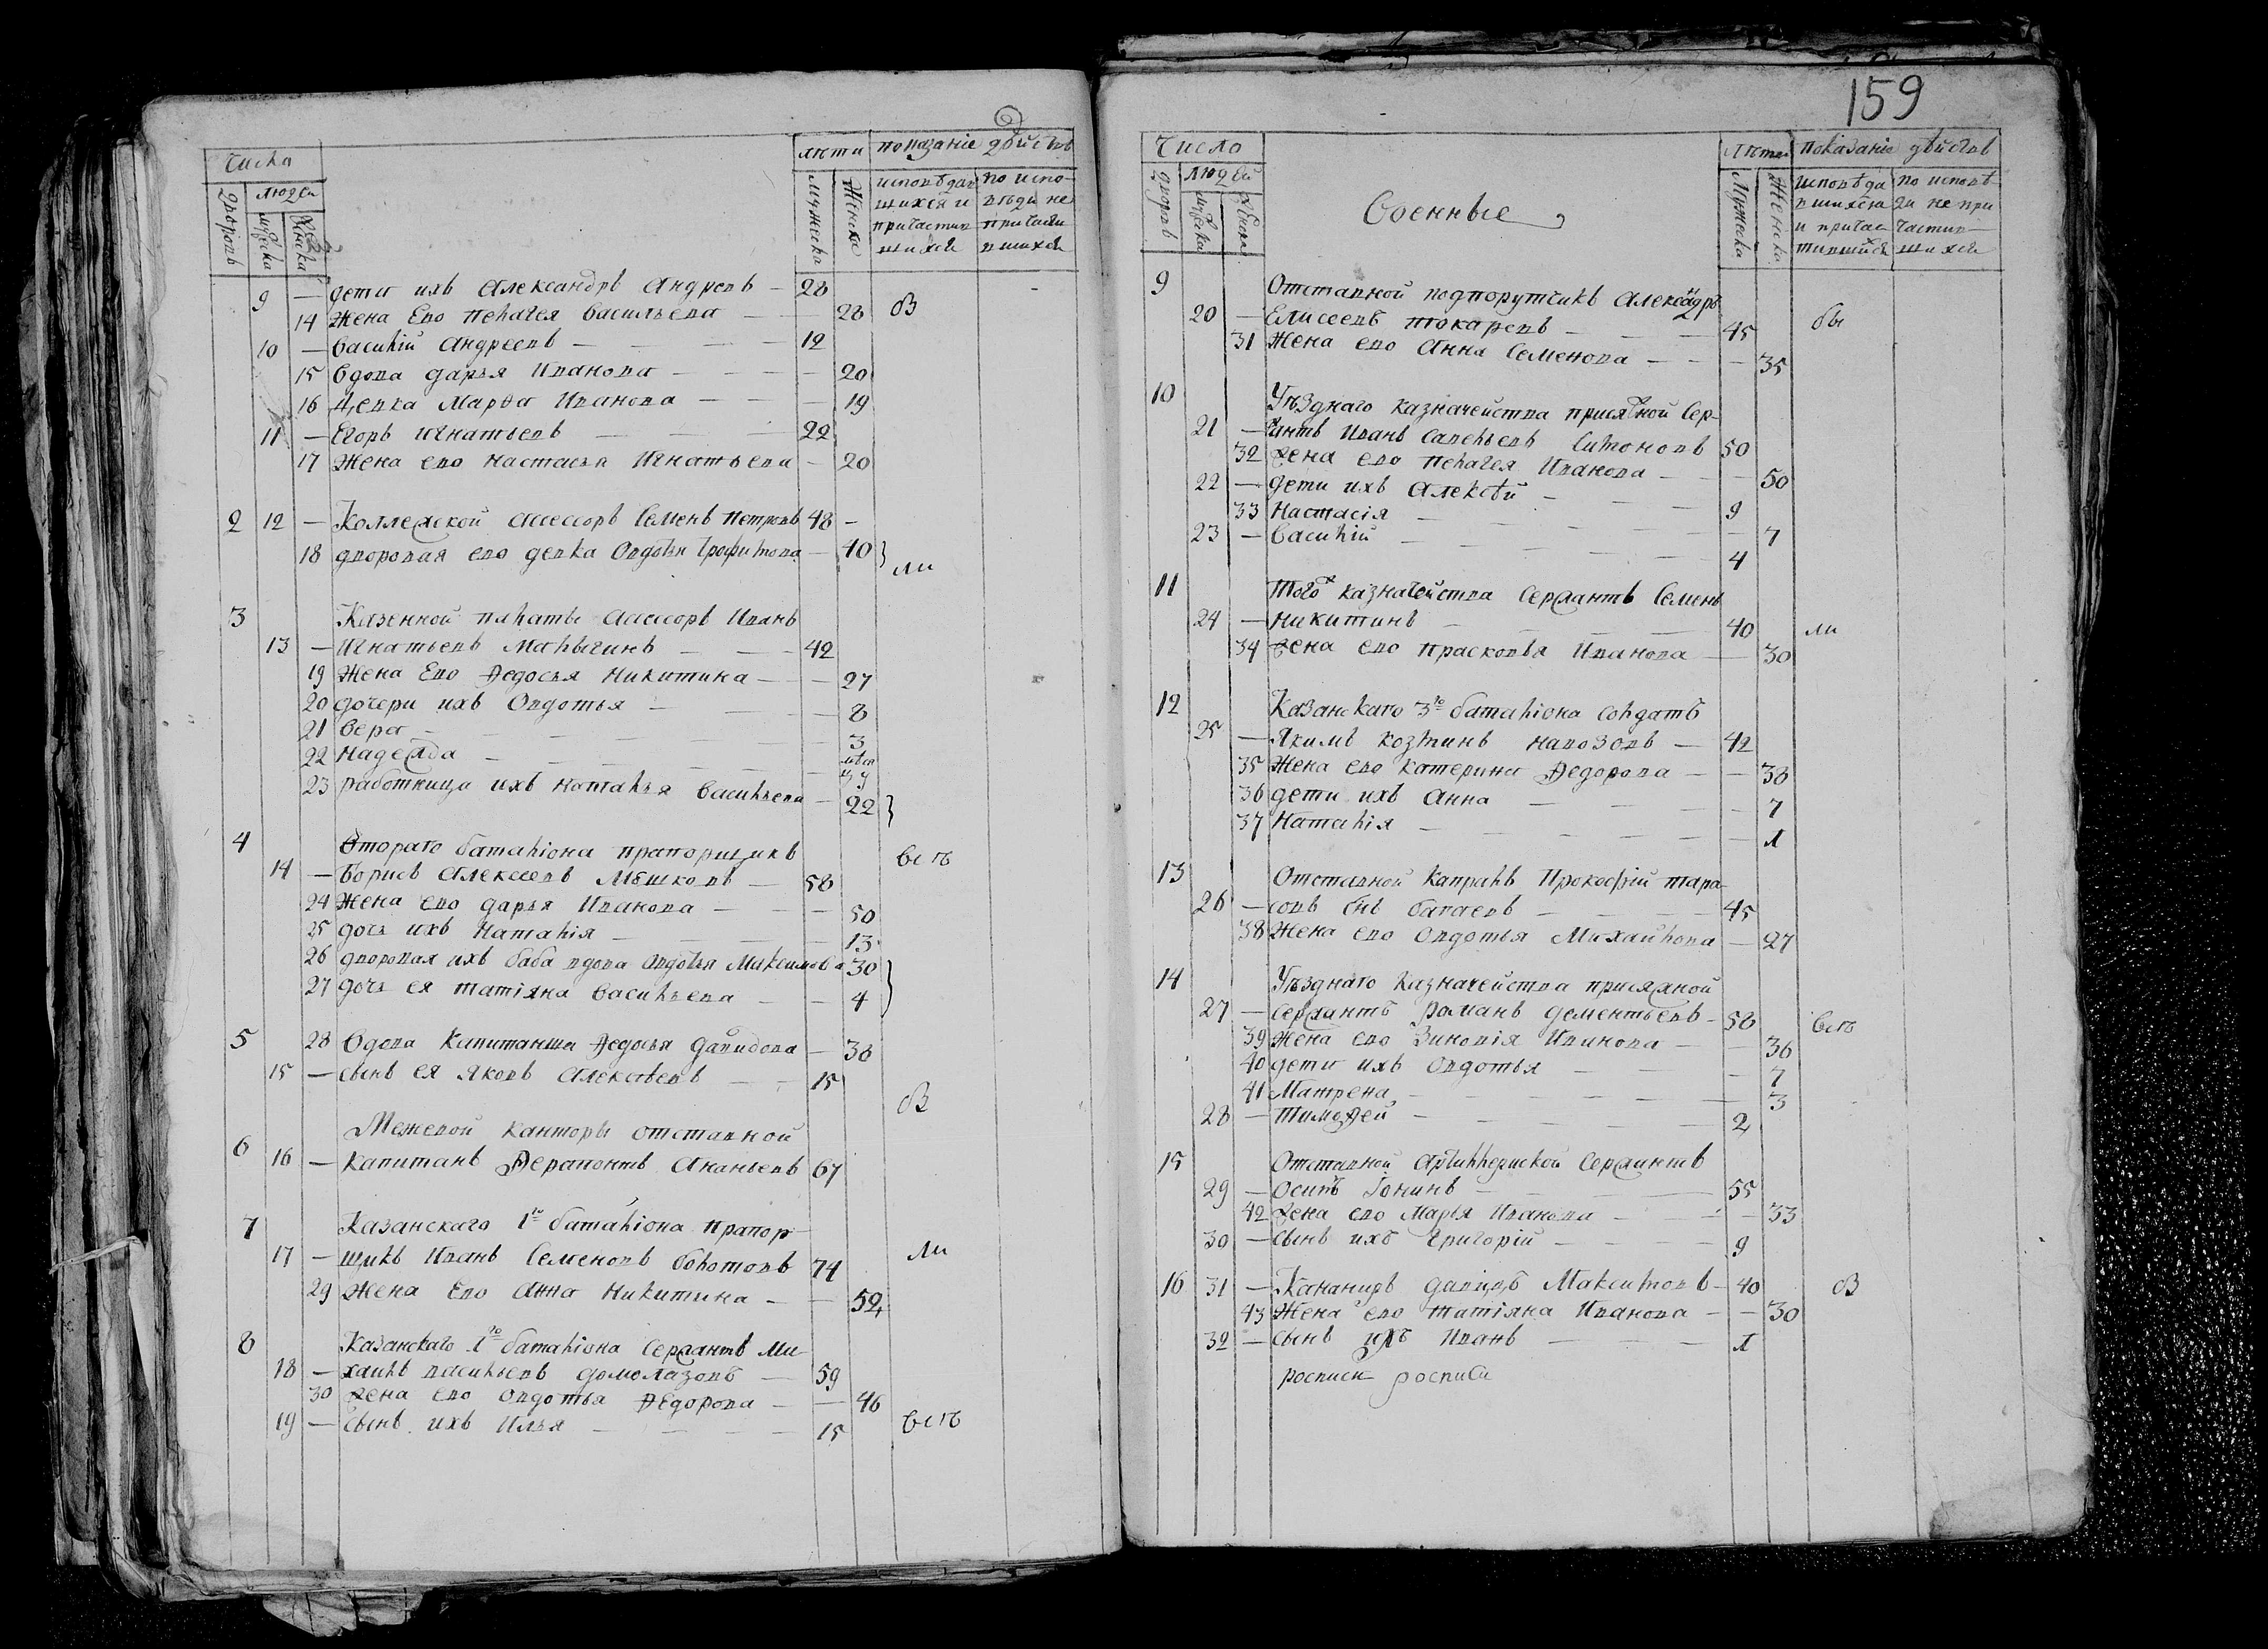 Число
людей
дворовъ
мужеска
женска
лѣта
мужеска
женска
показаніе дѣйствъ
исповѣдав
шихся и
причастив
шихся
по испо-
вѣди не
причасти
вшихся
9 — дети ихъ Александръ Андреевъ — 28
14 Жена Ево Пелагея Васильева — 28
10 — Василій Андреевъ — 12
15 Вдова дарья Иванова — 20
16 Девка Марѳа Иванова — 19
11 — Егоръ Игнатьевъ — 22
17 Жена ево Настасья Игнатьева — 20
2 12 — Коллежской ассессоръ Семенъ Петровъ 48 —
18 дворовая ево девка Овдотья Трофимова — 40
3 Казенной палаты Ассессоръ Иванъ
13 — Игнатьевъ Малыгинъ — 42
19 Жена Ево Ѳедосья Никитина — 27
20 дочери ихъ Овдотья — 8
21 Вера — 3
22 Надежда —
23 работница ихъ Наталья Васильева — 22
4 Втораго баталіона прапорщикъ
14 — Борисъ Алексеевъ Мешковъ — 58
24 Жена ево дарья Иванова — 50
25 дочь ихъ Наталія — 13
26 дворовая ихъ баба вдова Овдотья Максимова 30
27 дочь ея татіяна Васильева — 4
5 28 Вдова Капитанша Ѳедосья давидова — 38
15 — сынъ ея Яковъ Алексѣевъ — 15
Межевой канторы отставной
6 16 — капитанъ Ѳерапонтъ Ананьевъ 67
7 Казанскаго 1го баталіона прапор
17 — щикъ Иванъ Семеновъ Болотовъ 74
29 Жена Ево Анна Никитина — 52
8 Казанскаго 1го баталіона Сержантъ Ми
18 — хаилъ васильевъ домолазовъ — 59
30 жена ево овдотья Ѳедорова — 46
19 — сынъ ихъ Илья — 15
159
Число
людей
дворовъ
мужеска
женска
Военные
лѣта
Мужеска
Женска
показаніе дѣйствъ
исповѣда
вшихся
и причас
тившихся
по исповѣ
ди не при
частив—
шихся
9 Отставной подпорутчикъ Александръ
20 — Елисеевъ токаревъ — 45
31 Жена ево Анна Семенова — 35
10 Уѣзднаго казначейства присяжной Сер-
21 — жантъ Иванъ Савельевъ Симоновъ 50
32 жена ево Пелагея Иванова — 50
22 — дети ихъ Алексѣй — 9
33 Настасія — 7
23 — Василій — 4
11 Того ж казначейства Сержантъ Семенъ
24 — Никитинъ — 40
34 жена ево Прасковья Иванова — 30
12 Казанскаго 3го баталіона солдатъ
25 — Якимъ козминъ навозовъ — 42
35 Жена ево катерина Ѳедорова — 38
36 дети ихъ Анна — 7
37 Наталія — 1
13 Отставной Капралъ Прокофій тара
26 — совъ снъ багаевъ — 45
38 Жена ево Овдотья Михайлова — 27
14 Уѣзднаго Казначейства присяжной
27 — сержантъ Романъ дементьевъ — 58
39 Жена ево Зиновія Иванова — 36
40 дети ихъ Овдотья — 7
41 Матрена — 3
28 — Тимоѳей — 2
15 Отставной Артиллериской Сержантъ
29 — Осипъ Гонинъ — 55
42 жена ево Марья Иванова — 33
30 — сынъ ихъ Григорій — 9
16 31 — Кананиръ давидъ Максимовъ — 40
43 Жена ево татіяна Иванова — 30
32 — сынъ ихъ Иванъ — 1
росписи росписи